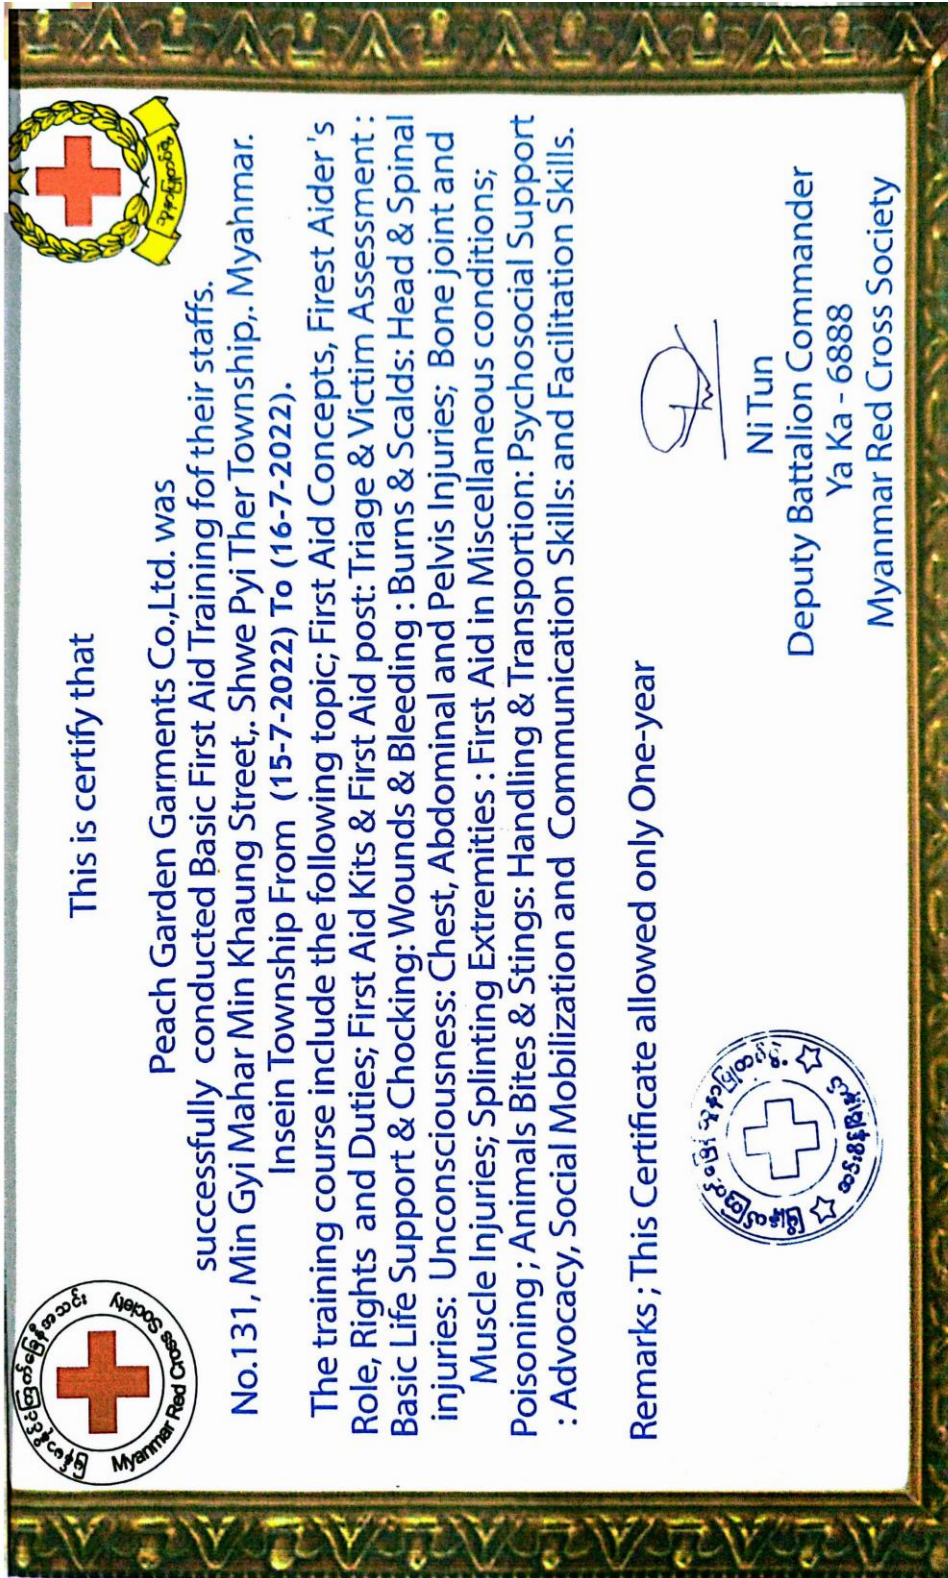 မြန်မာနိုင်ငံကြက်ခြေနီအသင်း
Myanmar Red Cross Society
This is certify that
Peach Garden Garments Co.,Ltd. was
successfully conducted Basic First Aid Training fof their staffs.
No.131, Min Gyi Mahar Min Khaung Street,. Shwe Pyi Ther Township,. Myahmar.
Insein Township From (15-7-2022) To (16-7-2022).
The training course include the following topic; First Aid Concepts, Firest Aider's
Role, Rights and Duties; First Aid Kits & First Aid post: Triage & Victim Assessment :
Basic Life Support & Chocking: Wounds & Bleeding : Burns & Scalds: Head & Spinal
injuries: Unconsciousness: Chest, Abdominal and Pelvis Injuries; Bone joint and
Muscle Injuries; Splinting Extremities : First Aid in Miscellaneous conditions;
Poisoning ; Animals Bites & Stings: Handling & Transportion: Psychosocial Support
: Advocacy, Social Mobilization and Communication Skills: and Facilitation Skills.
Remarks ; This Certificate allowed only One-year
Ni Tun
Deputy Battalion Commander
Ya Ka - 6888
Myanmar Red Cross Society